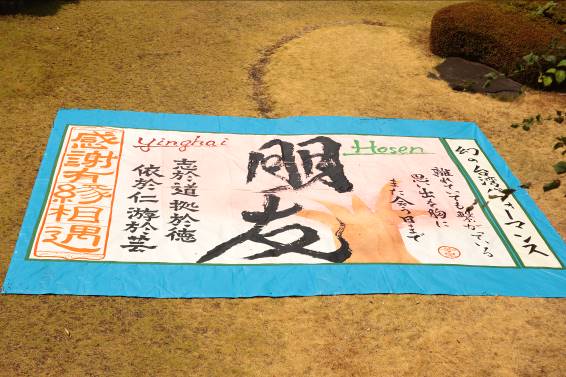 幻の台湾パフォーマンス
Hosen
離れていても繋がっている
思い出を胸に
また会う日まで
朋友
Yinghai
志於道 拠於徳
依於仁 游於芸
感謝有縁相遇